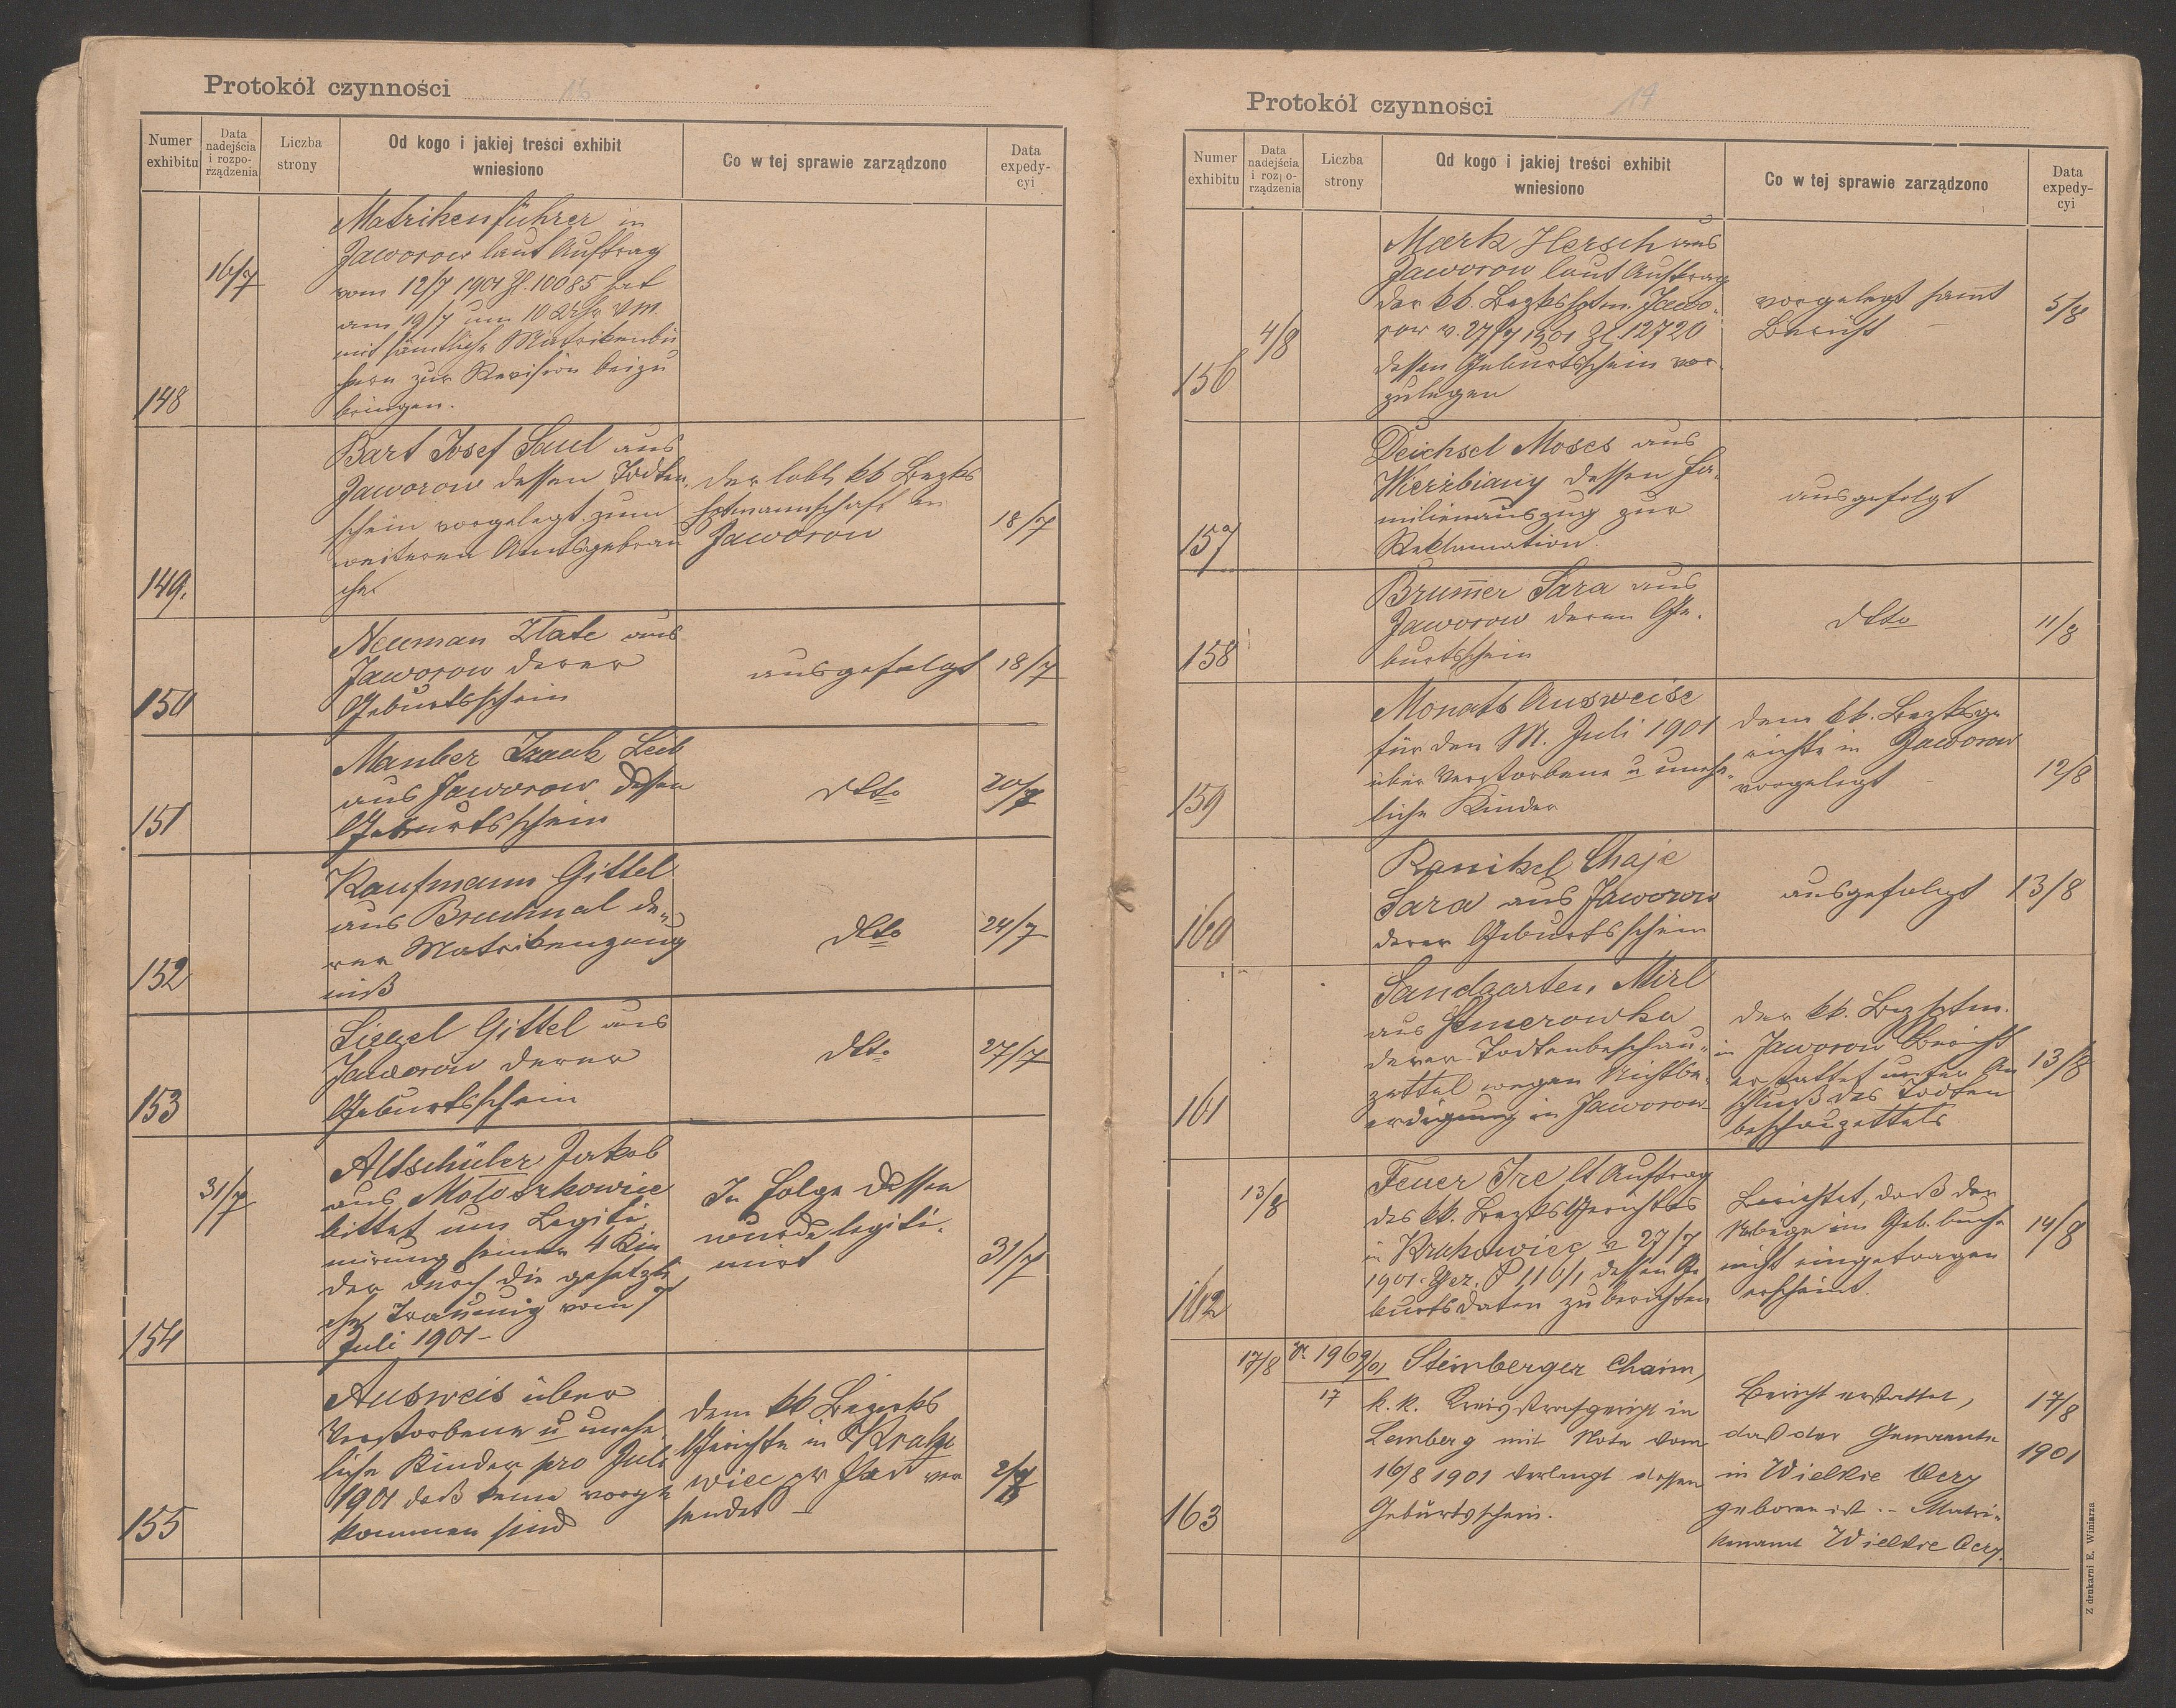 Protokół czynności 16
Numer exhibitu
Data nadejścia i rozpo- rządzenia
Liczba strony
Od kogo i jakiej treści exhibit wniesiono
Co w tej sprawie zarządzono
Data expedy- cyi
148
16/7
Matrikenführer in
Jaworow laut Auftrag
vom 12/7 1901 Zl. 10085 hat
am 19/7 um 10 Uhr VM.
mit sämtliche Matrikenbü
chern zur Revision beizu
bringen.
149.
Bart Josef Saul aus
Jaworow dessen Todten-
schein vorgelegt zum
weiteren Amtsgebrau
che
der löbl. kk Bezks
hptmannschaft in
Jaworow
18/7
150
Neuman Zlate aus
Jaworow deren
Geburtsschein
ausgefolgt
18/7
151
Manber Isaak Leib
aus Jaworow dessen
Geburtsschein
dtto
20/7
152
Kaufmann Gittel
aus Bruchnal de-
ren Matrikenzeug
niß
dtto
24/7
153
Siegel Gittel aus
Jaworow deren
Geburtsschein
dtto
27/7
154
31/7
Altschüler Jakob
aus Mołoszkowice
bittet um Legiti
mirung seiner 4 Kin
der durch die gesetzli
che Trauung vom 7
Juli 1901 -
In folge dessen
wurde legiti-
mirt
31/7
155
Ausweis über
Verstorbene u unehe
liche Kinder pro Juli
1901 daß keine vorge
kommen sind
dem kk Bezirks
Gerichte in Krako
wiec ver
sendet -
2/8
Protokół czynności 17
Numer exhibitu
Data nadejścia i rozpo- rządzenia
Liczba strony
Od kogo i jakiej treści exhibit wniesiono
Co w tej sprawie zarządzono
Data expedy- cyi
156
4/8
Mark Hersch aus
Jaworow laut Auftrag
der kk. Bezkshptm. Jawo-
row v. 27/7 1901 Zl. 12720
dessen Geburtsschein vor-
zulegen
vorgelegt samt
Bericht -
5/8
157
Deichsel Moses aus
Wierzbiany dessen Fa-
milienauszug zur
Reklamation.
ausgefolgt
158
Brum̄er Sara aus
Jaworow deren Ge-
burtsschein
dtto
11/8
159
Monats Ausweise
für den M. Juli 1901
über Verstorbene u unehe-
liche Kinder
dem kk. Bezksge
richte in Jaworow
vorgelegt -
12/8
160
Ranikel Chaje
Sara aus Jaworow
deren Geburtsschein
ausgefolgt
13/8
161
Sandgarten Mirl
aus Szmerowka
deren Todtenbeschau-
zettel wegen Nichtbe-
erdigung in Jaworow
der kk. Bezhptm.
in Jaworow Bericht
erstattet unter An
schluß des Todten
beschauzettels
13/8
162
13/8
Feuer Ire lt Auftrag
des kk. Bezks Gerichtes
in Krakowiec v 27/7
1901 Gez. P 116/1 dessen Ge
burtsdaten zu berichten
Berichtet, daß der
Nobege im Geb. buche
nicht eingetragen
erscheint.
14/8
163
17/8
Vr 1969/01
17
Steinberger Chaim,
k. k. Kreisstrafgericht in
Lemberg mit Note vom
16/8 1901 verlangt dessen
Geburtsschein.
Bericht erstattet,
daß der Genannte
in Wielkie Oczy
geboren ist. - Matri-
kenamt Wielkie Oczy.
17/8
1901
Z drukarni E. Winiarza